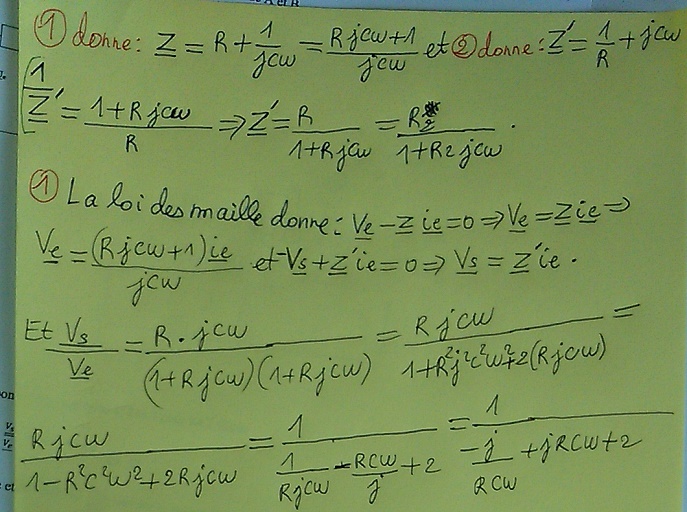 ① donne: Z = R + 1/jcω = (Rjcω+1)/jcω et ② donne: Z' = 1/R + jcω
[1/Z' = (1+Rjcω)/R ⇒ Z' = R/(1+Rjcω) = R₂/(1+R₂jcω).
① La loi des maille donne: Ve − Z ie = 0 ⇒ Ve = Z ie ⇒
Ve = (Rjcω+1)ie/jcω et −Vs + Z'ie = 0 ⇒ Vs = Z'ie.
Et Vs/Ve = R·jcω/((1+Rjcω)(1+Rjcω)) = Rjcω/(1+R²j²c²ω²+2(Rjcω)) =
Rjcω/(1−R²c²ω²+2Rjcω) = 1/(1/Rjcω − Rcω/j + 2) = 1/(−j/Rcω + jRcω + 2)